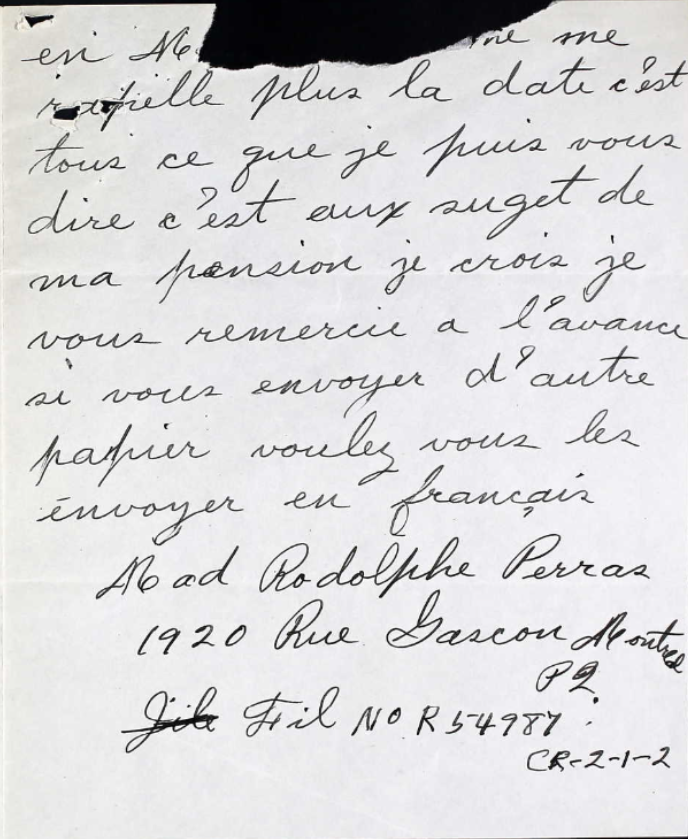 en me
rapielle plus la date c'est
tous ce que je puis vous
dire c'est aux suget de
ma pension je crois je
vous remercie a l'avance
si vous envoyer d'autre
papier voulez vous les
envoyer en français
Mad Rodolphe Perras
1920 Rue Gascon Montreal
P2
File Fil No R 54987
CR-2-1-2